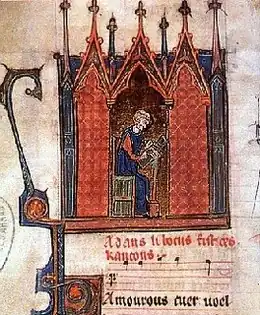 Adans li bocus fist ces
kancons.
Amourous cuer voel